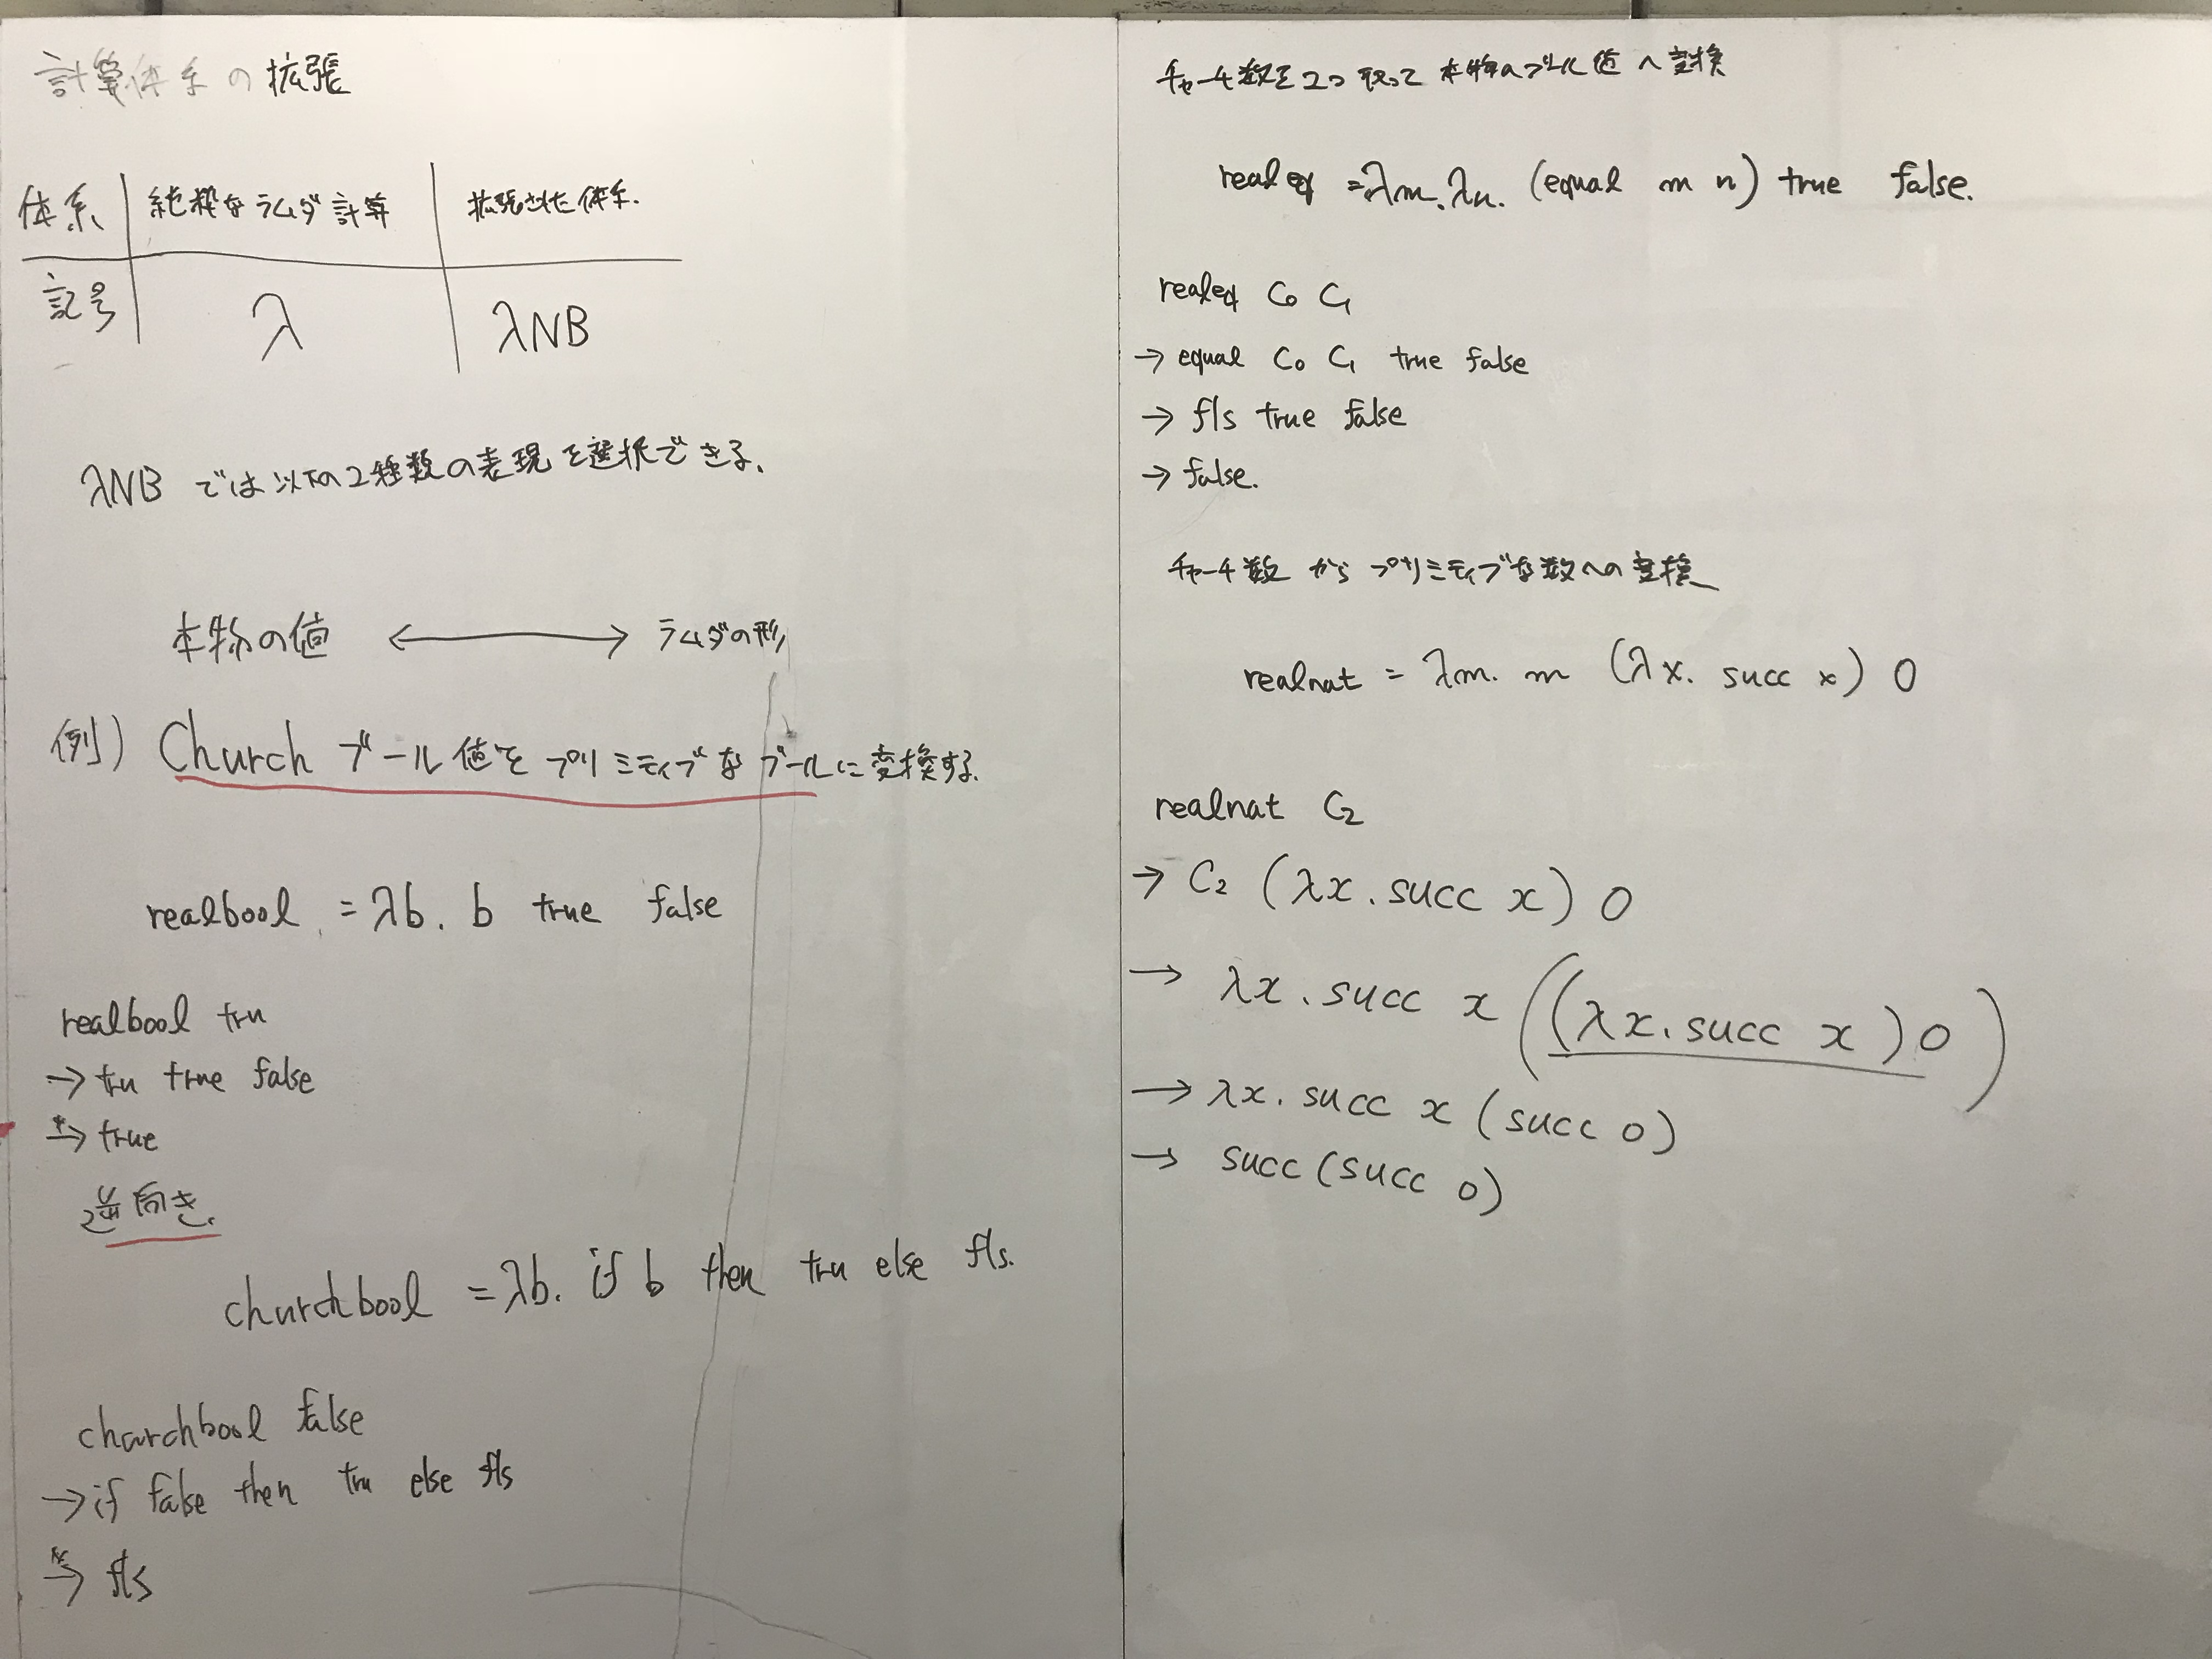 計算体系の拡張
体系 純粋なラムダ計算 拡張された体系.
記号 λ λNB
λNB では以下の2種類の表現を選択できる.
本物の値 ⟷ ラムダの形
例) Church ブール値を プリミティブな ブールに変換する.
realbool = λb. b true false
realbool tru
→ tru true false
→* true
逆向き.
churchbool = λb. if b then tru else fls.
charchbool false
→ if false then tru else fls
→* fls
チャーチ数を2つ取って 本物のブール値へ変換
realeq = λm. λn. (equal m n) true false.
realeq C₀ C₁
→ equal C₀ C₁ true false
→ fls true false
→ false.
チャーチ数 から プリミティブな数への変換
realnat = λm. m (λx. succ x) 0
realnat C₂
→ C₂ (λx. succ x) 0
→ λx. succ x ((λx. succ x) 0)
→ λx. succ x (succ 0)
→ succ (succ 0)